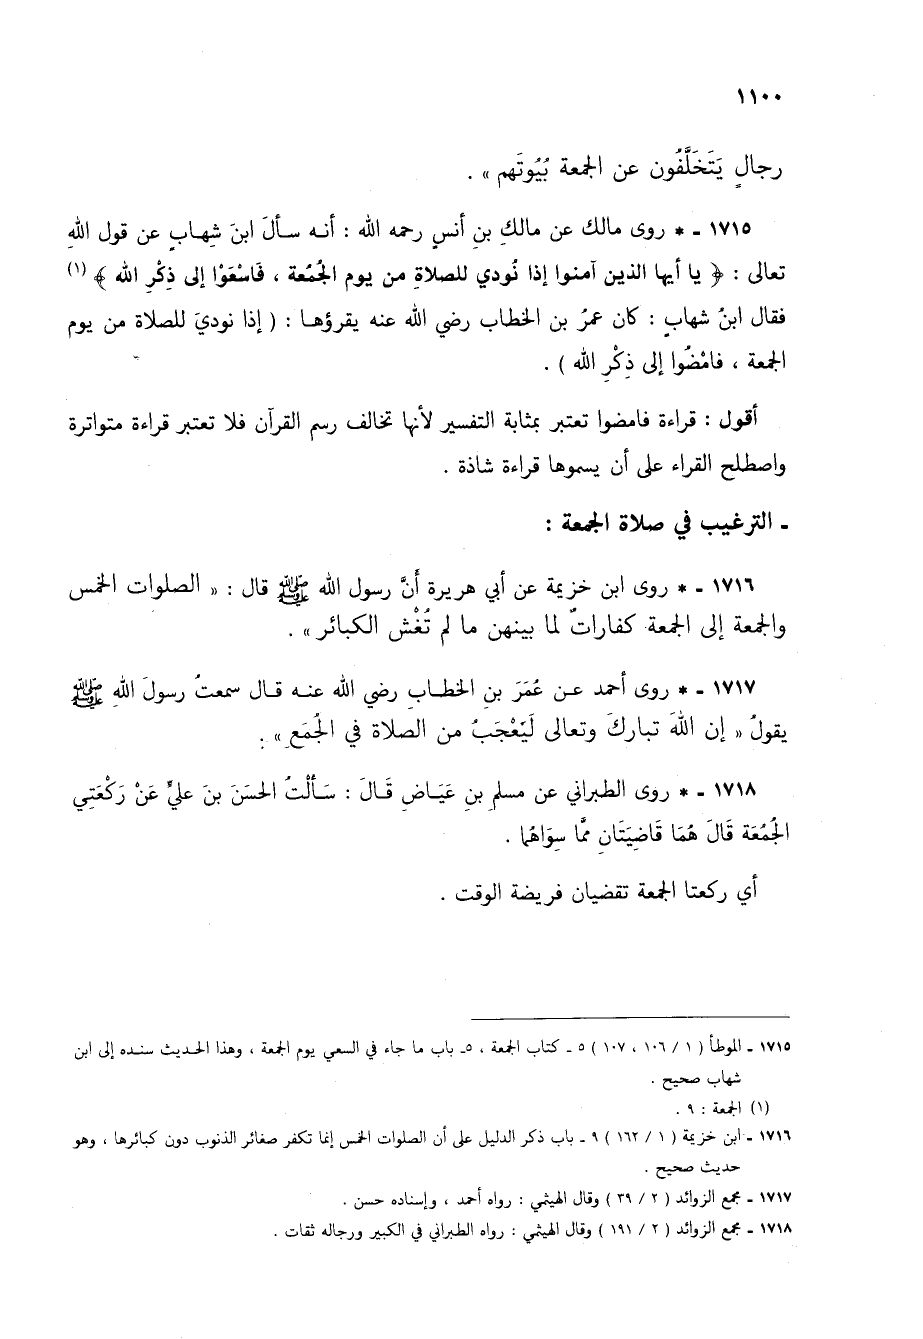 ١١٠٠
رجالٍ يَتَخَلَّفُون عن الجمعة بُيُوتَهم » .
١٧١٥ - * روى مالك عن مالكِ بنِ أنسٍ رحمه الله : أنه سألَ ابنَ شهابٍ عن قول اللهِ
تعالى : ﴿ يا أيها الذين آمنوا إذا نُودي للصلاةِ من يوم الجُمُعة ، فَاسْعَوْا إلى ذِكْرِ الله ﴾ (١)
فقال ابنُ شهابٍ : كان عمرُ بن الخطاب رضي الله عنه يقرؤها : ( إذا نوديَ للصلاة من يوم
الجمعة ، فامْضُوا إلى ذِكْرِ الله ) .
أقول : قراءة فامضوا تعتبر بمثابة التفسير لأنها تخالف رسم القرآن فلا تعتبر قراءة متواترة
واصطلح القراء على أن يسموها قراءة شاذة .
- الترغيب في صلاة الجمعة :
١٧١٦ - * روى ابن خزيمة عن أبي هريرة أَنَّ رسول الله ﷺ قال : « الصلوات الخمس
والجمعة إلى الجمعة كفاراتٌ لما بينهن ما لم تُغْش الكبائر » .
١٧١٧ - * روى أحمد عن عُمَرَ بنِ الخطابِ رضي الله عنه قال سمعتُ رسولَ اللهِ ﷺ
يقولُ « إن اللهَ تباركَ وتعالى لَيَعْجَبُ من الصلاة في الجُمَعِ » .
١٧١٨ - * روى الطبراني عن مسلمِ بنِ عَيَاضٍ قَالَ : سَأَلْتُ الحسَنَ بنَ عليٍّ عَنْ رَكْعَتِي
الجُمُعَة قَالَ هُمَا قَاضِيَتَانِ مِمَّا سِوَاهُما .
أي ركعتا الجمعة تقضيان فريضة الوقت .
١٧١٥ - الموطأ ( ١ / ١٠٦ ، ١٠٧ ) ٥ - كتاب الجمعة ، ٥- باب ما جاء في السعي يوم الجمعة ، وهذا الحديث سنده إلى ابن
شهاب صحيح .
(١) الجمعة : ٩ .
١٧١٦ - ابن خزيمة ( ١ / ١٦٢ ) ٩ - باب ذكر الدليل على أن الصلوات الخمس إنما تكفر صغائر الذنوب دون كبائرها ، وهو
حديث صحيح .
١٧١٧ - مجمع الزوائد ( ٢ / ٣٩ ) وقال الهيثمي : رواه أحمد ، وإسناده حسن .
١٧١٨ - مجمع الزوائد ( ٢ / ١٩١ ) وقال الهيثمي : رواه الطبراني في الكبير ورجاله ثقات .